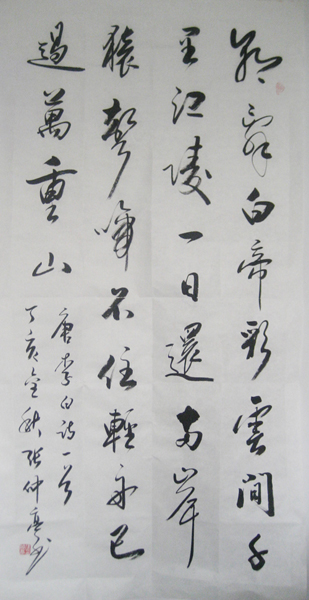 朝辞白帝彩雲間千
里江陵一日還両岸
猿聲啼不住輕舟已
過萬重山
唐李白詩一首
丁亥金秋張仲亭書